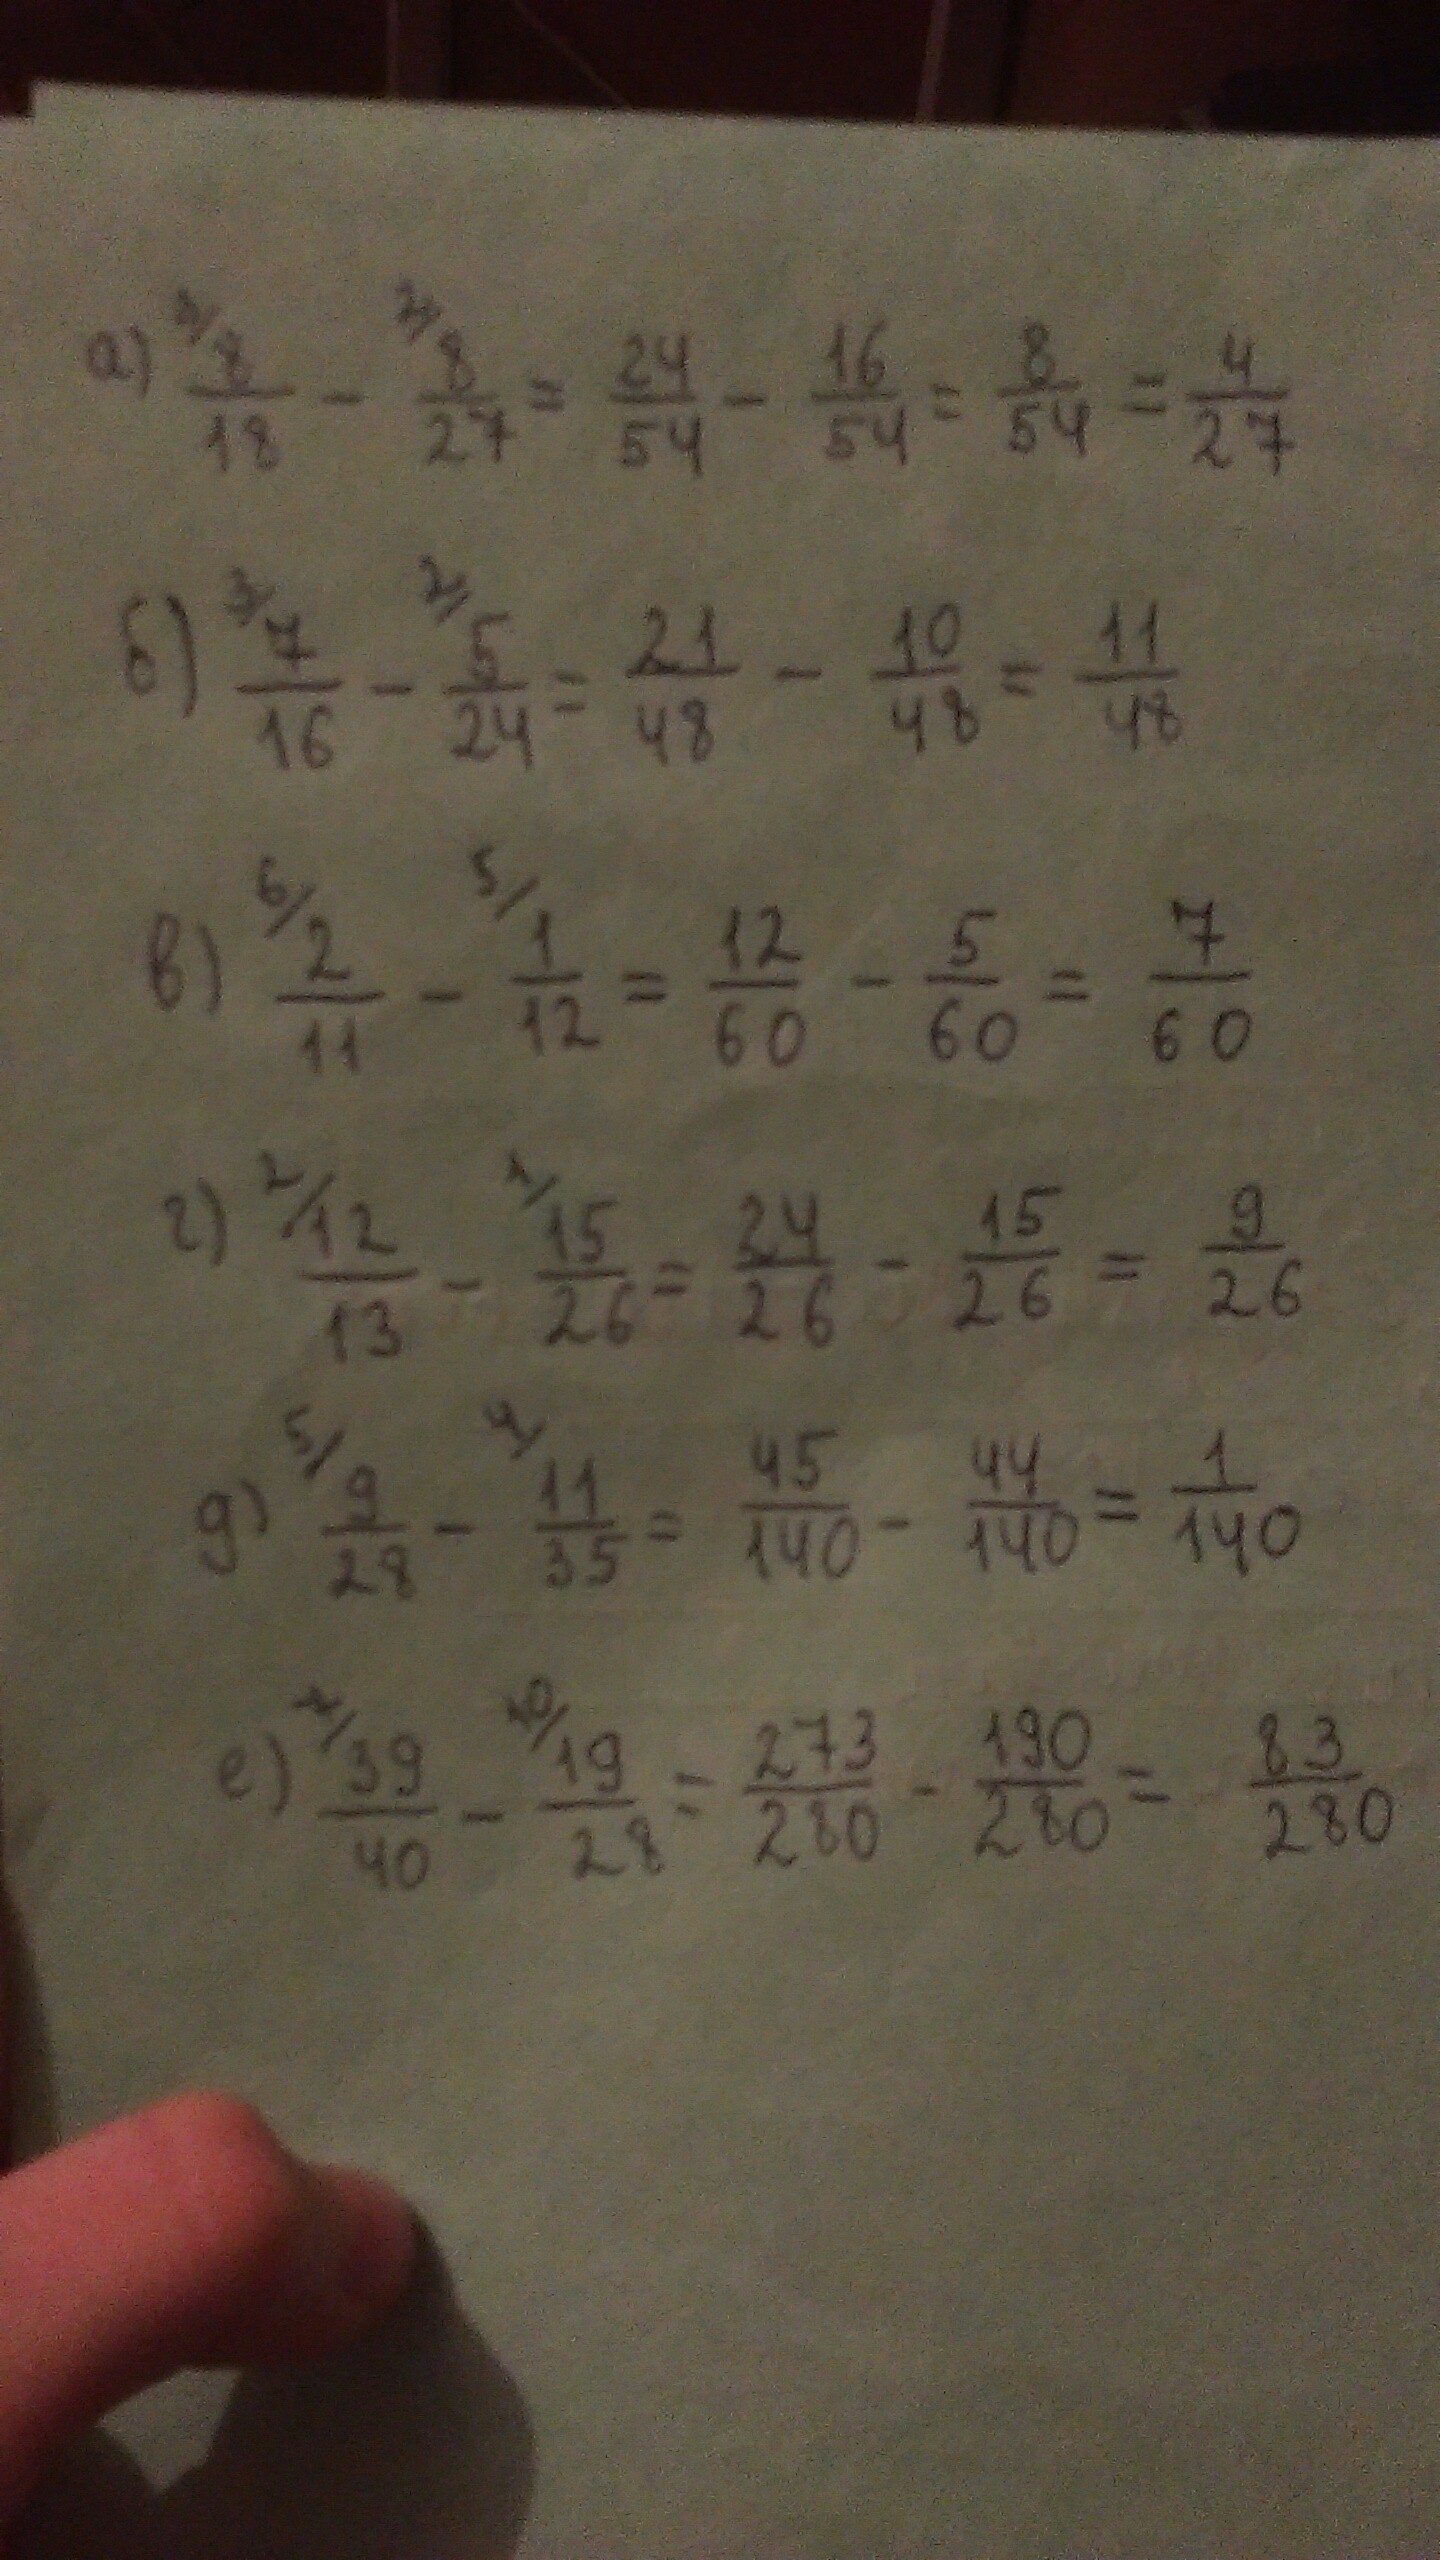 а) 3/ 8/18 - 2/ 8/27 = 24/54 - 16/54 = 8/54 = 4/27
б) 3/ 7/16 - 2/ 5/24 = 21/48 - 10/48 = 11/48
в) 6/ 2/11 - 5/ 1/12 = 12/60 - 5/60 = 7/60
г) 2/ 12/13 - 1/ 15/26 = 24/26 - 15/26 = 9/26
д) 5/ 9/28 - 4/ 11/35 = 45/140 - 44/140 = 1/140
е) 7/ 39/40 - 10/ 19/28 = 273/280 - 190/280 = 83/280